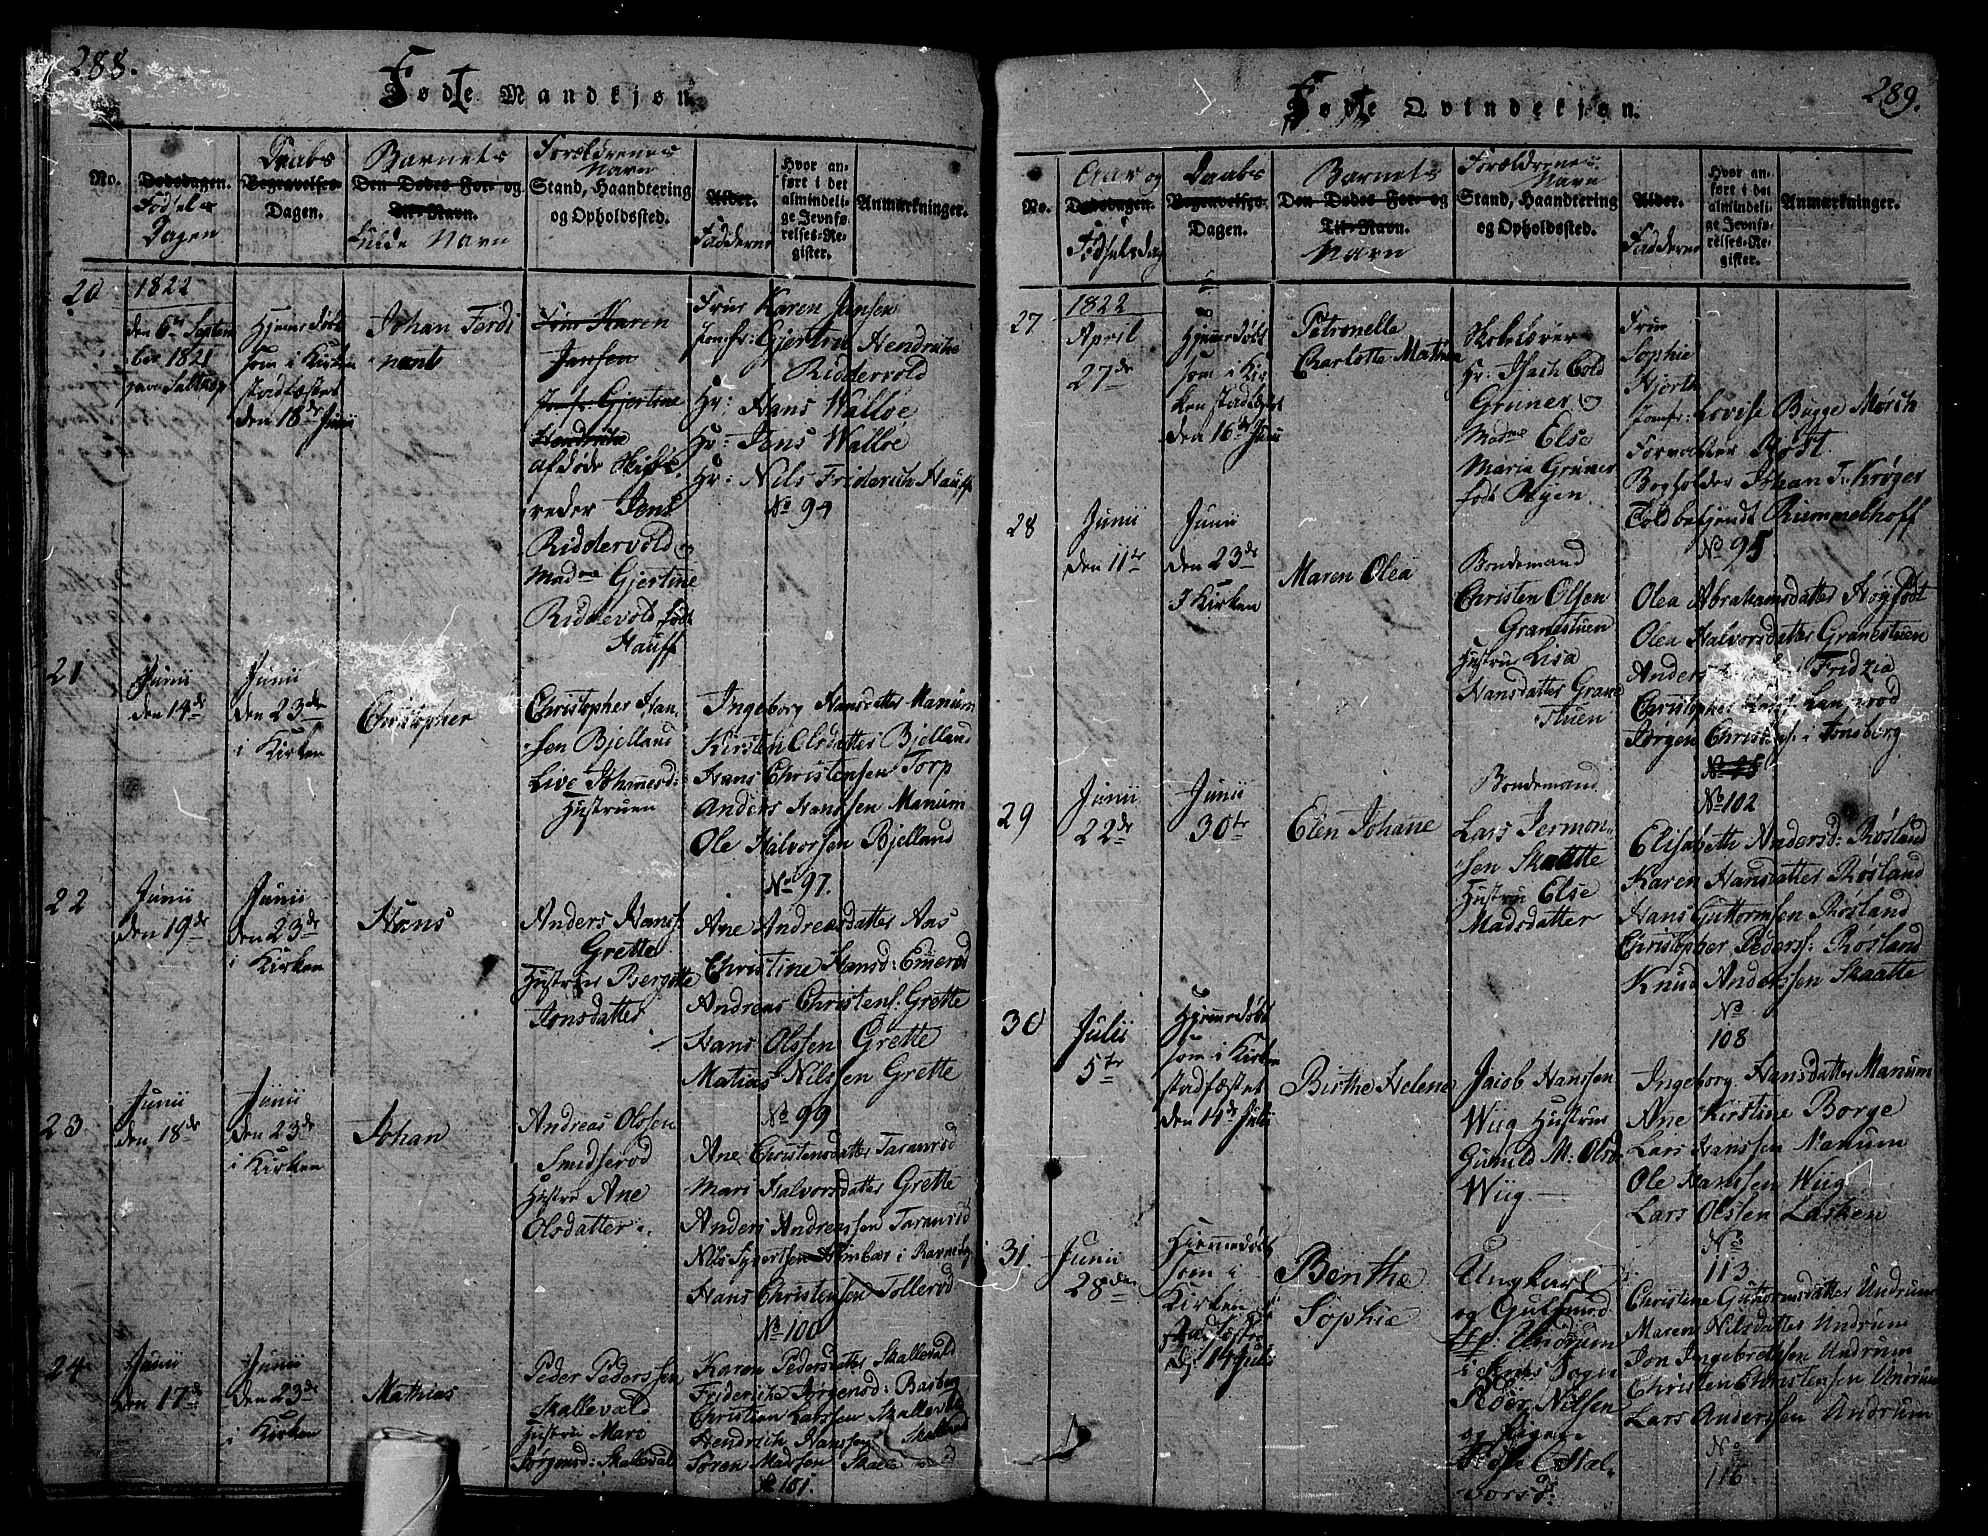 288.
Fødte Mandkjøn
No.
Dødsdagen.
Fødsels
Dagen
Daabs
Begravelses-
Dagen.
Barnets
Den Dødes For- og
Til-Navn.
fulde Navn
Forældrenes
Navn
Stand, Haandtering
og Opholdssted.
Alder.
Fadderne
Hvor an-
ført i det
almindeli-
ge Jevnfø-
relses-Re-
gister.
Anmærkninger.
20
1822
den 6te Septem
ber 1821
Hjemmedøbt
som i Kirken
stadfæstet
den 18de Junii
Johan Ferdi
nant
Frue Karen
Jansen
Jomfr: Gjertine
Hendriche
afdøde Skibs-
reder Jens
Riddervold og
Madme Gjertine
Riddevold født
Hauff
Frue Karen Jansen
Jomfr: Gjertin Hendriche
Riddervold
Hr: Hans Walløe
Hr: Jens Walløe
Hr: Nils Friderich Hauff
No 94
21
Junii
den 14de
Junii
den 23de
i Kirken
Christopher
Christopher Han-
sen Bjelland
Live Johannesd:
Hustruen
Ingeborg Hansdatter Manum
Kirsten Olsdatter Bjelland
Hans Christensen Torp
Anders Hanssen Manum
Ole Halvorsen Bjelland
No 97.
22
Junii
den 19de
Junii
den 23de
i Kirken
Hans
Anders Hanss.
Grette
Hustrue Bergitte
Jonsdatter
Ane Andreasdatter Aas
Christine Hansd: Emerød
Andreas Christens. Grette
Hans Olssen Grette
Matias Nilssen Grette
No 99
23
Junii
den 18de
Junii
den 23de
i Kirken
Johan
Andreas Olssen
Smidserød
Hustru Ane
Olsdatter
Ane Christensdatter Taranrød
Mari Halvorsdatter Grette
Anders Andreassen Taranrød
Nils Syvertsen i Ravnedag
Hans Christensen Tollerød
No 100
24
Junii
den 17de
Junii
den 23de
i Kirken
Mathias
Peder Pederssen
Skallevald
Hustru Mari
Jørgensd: Skallevald
Karen Pedersdatter Skallevald
Friderike Jørgensd: Basberg
Christian Larssen Skallevald
Hendrich Hanssen Skallevald
Søren Madssen Skalle
No 101.
289.
Fødte Qvindekjøn.
No.
Aar og
Dødsdagen.
Fødselsdag
Daabs
Begravelses-
Dagen.
Barnets
Den Dødes For- og
Til-Navn.
Navn
Forældrenes
Navn
Stand, Haandtering
og Opholdssted.
Alder.
Fadderne
Hvor an-
ført i det
almindeli-
ge Jevnfø-
relses-Re-
gister.
Anmærkninger.
27
1822
April
27de
Hjemmedøbt
som i Kir
ken stadfæstet
den 16de Junii
Petronelle
Charlotte Mathea
Skolelærer
Hr: Isach Cold
Gruner og
Madme Else
Maria Gruner
født Nyen
Frue
Sophie
Hjorth
Jomfr: Lovise Bugge Mørch
Forvalter Røst
Bogholder Johan T. Krøger
Toldbetjendt Rummelhoff
No 95
28
Junii
den 11te
Junii
den 23de
I Kirken
Maren Olea
Bondemand
Christen Olsen
Granestuen
Hustru Lisa
Hansdatter Grane
stuen
Olea Abrahamsdatter Høyfødt
Olea Halvorsdatter Granestuen
Anders Fridzia
Christopher
Jørgen Christens. i Tønsberg
No 95
No 102
29
Junii
22de
Junii
30te
Elen Johane
Bondemand
Lars Jermon-
sen Skaatte
Hustru Else
Madsdatter
Elisabeth Andersd: Røsland
Karen Hansdatter Røsland
Hans Guttormsen Røsland
Christopher Peders: Røsland
Knud Anderssen Skaatte
No
108
30
Julii
5te
Hjemmedøbt
som i Kirken
stadfæstet
den 14de Julii
Birthe Helene
Jacob Hanssen
Wiig Hustrue
Gunild M: Olsd
Wiig
Ingeborg Hansdatter Manum
Ane Kirstine Borge
Lars Hanssen Manum
Ole Hanssen Wiig
Lars Olssen Lasken
No
113
31.
Junii
28den
Hjemmedøbt
som i
Kirken
stadfæstet
d: 14 Julii
Benthe
Sophie
Ungkarl
og Gulsmed
Undrum
i Sems Sogn
Roer Nilsen
og Pigen
Else Hal-
vorsd:
Christine Guttormsdatter Undrum
Maren Nilsdatter Undrum
Jon Ingebrethsen Undrum
Christen Christensen Undrum
Lars Anderssen Undrum
No
116